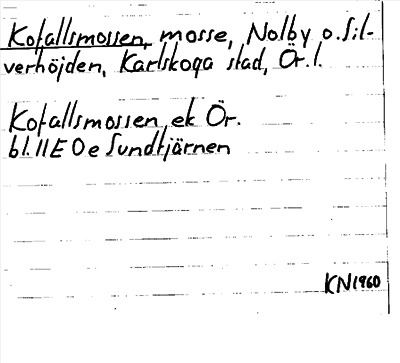 Kofallsmossen, mosse, Nolby o. Sil-
verhöjden, Karlskoga stad, Ör. l.
Kofallsmossen ek Ör.
bl. 11E 0e Sundtjärnen
KN 1960